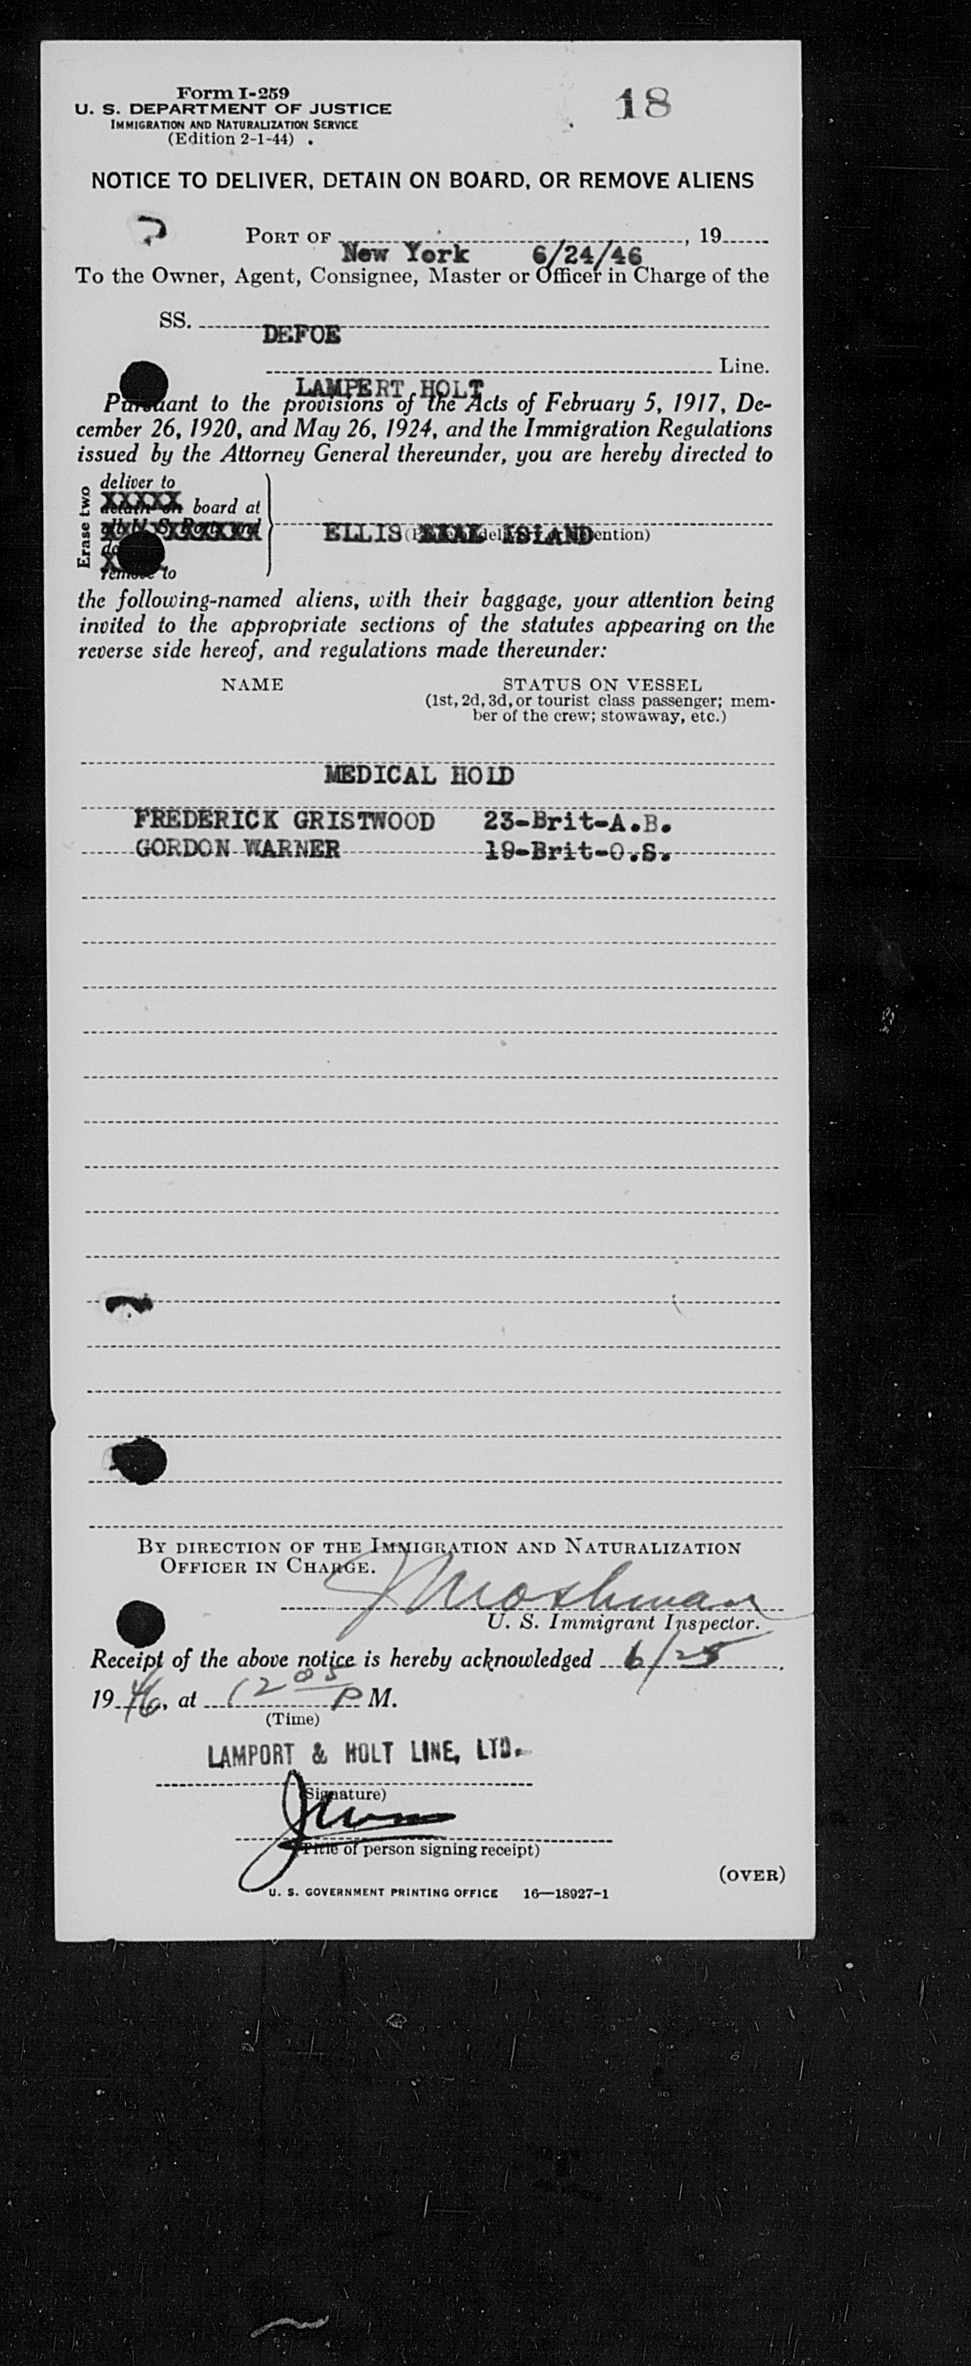 Form I-259
U. S. DEPARTMENT OF JUSTICE
IMMIGRATION AND NATURALIZATION SERVICE
(Edition 2-1-44)
18
NOTICE TO DELIVER, DETAIN ON BOARD, OR REMOVE ALIENS
PORT OF New York 6/24/46, 19
To the Owner, Agent, Consignee, Master or Officer in Charge of the
SS. DEFOE
LAMPERT HOLT Line.
Pursuant to the provisions of the Acts of February 5, 1917, De-
cember 26, 1920, and May 26, 1924, and the Immigration Regulations
issued by the Attorney General thereunder, you are hereby directed to
Erase two
deliver to
detain on board at
remove to
ELLIS ISLAND
the following-named aliens, with their baggage, your attention being
invited to the appropriate sections of the statutes appearing on the
reverse side hereof, and regulations made thereunder:
NAME STATUS ON VESSEL
(1st, 2d, 3d, or tourist class passenger; mem-
ber of the crew; stowaway, etc.)
MEDICAL HOLD
FREDERICK GRISTWOOD 23-Brit-A.B.
GORDON WARNER 19-Brit-O.S.
BY DIRECTION OF THE IMMIGRATION AND NATURALIZATION
OFFICER IN CHARGE.
U. S. Immigrant Inspector.
Receipt of the above notice is hereby acknowledged 6/25,
1946, at 12 05 P M.
(Time)
LAMPORT & HOLT LINE, LTD.
(Signature)
(Title of person signing receipt)
(OVER)
U. S. GOVERNMENT PRINTING OFFICE 16—18927-1